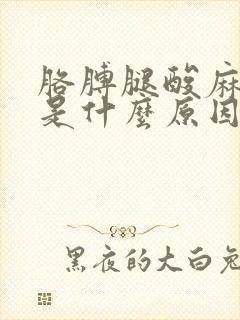 胳膊腿酸麻
是什麼原因
黑夜的大白兔